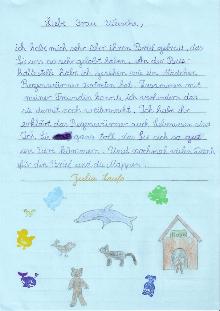 Liebe Frau Wünsche,
ich habe mich sehr über Ihren Brief gefreut, das
Sie uns so sehr gelobt haben. An der Bus-
haltestelle habe ich gesehen wie ein Mädchen
Regenwürmer zertreten hat. Zusammen mit
meiner Freundin konnte ich verhindern das
sie damit noch weitermacht. Ich habe ihr
erklärt das Regenwürmer auch Lebewesen sind.
Ich ganz toll, das Sie sich so gut
um Tiere kümmern. Und nochmal vielen Dank
für den Brief und die Mappen.
Julia